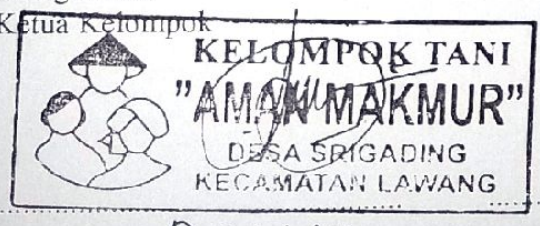 Ketua Kelompok
KELOMPOK TANI
"AMAN MAKMUR"
DESA SRIGADING
KECAMATAN LAWANG